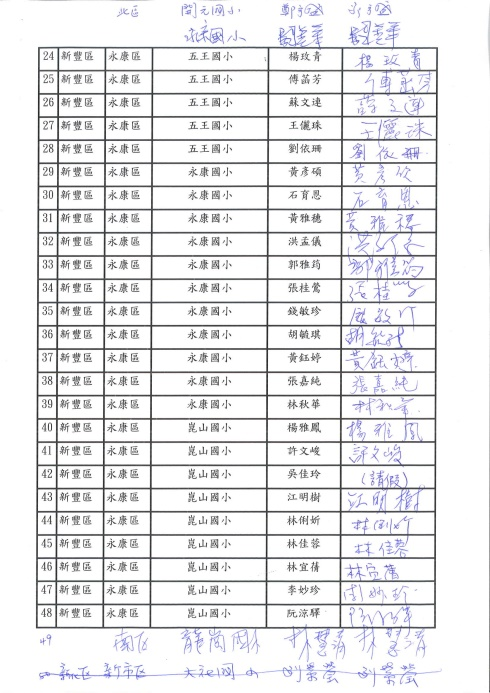 北區 開元國小
永康國小
24 新豐區 永康區 五王國小 楊玫青 楊玫青
25 新豐區 永康區 五王國小 傅菡芳 傅菡芳
26 新豐區 永康區 五王國小 蘇文連 蘇文連
27 新豐區 永康區 五王國小 王儷珠 王儷珠
28 新豐區 永康區 五王國小 劉依珊 劉依珊
29 新豐區 永康區 永康國小 黃彥碩 黃彥碩
30 新豐區 永康區 永康國小 石育恩 石育恩
31 新豐區 永康區 永康國小 黃雅穗 黃雅穗
32 新豐區 永康區 永康國小 洪孟儀
33 新豐區 永康區 永康國小 郭雅筠 郭雅筠
34 新豐區 永康區 永康國小 張桂鶯 張桂鶯
35 新豐區 永康區 永康國小 錢敏珍
36 新豐區 永康區 永康國小 胡毓琪 胡毓琪
37 新豐區 永康區 永康國小 黃鈺婷 黃鈺婷
38 新豐區 永康區 永康國小 張嘉純 張嘉純
39 新豐區 永康區 永康國小 林秋華 林秋華
40 新豐區 永康區 崑山國小 楊雅鳳 楊雅鳳
41 新豐區 永康區 崑山國小 許文峻 許文峻
42 新豐區 永康區 崑山國小 吳佳玲 (請假)
43 新豐區 永康區 崑山國小 江明樹 江明樹
44 新豐區 永康區 崑山國小 林俐妡 林俐妡
45 新豐區 永康區 崑山國小 林佳蓉 林佳蓉
46 新豐區 永康區 崑山國小 林宜蒨 林宜蒨
47 新豐區 永康區 崑山國小 李妙珍 李妙珍
48 新豐區 永康區 崑山國小 阮涼驛
49 南區 龍崗國小 林慧清 林慧清
50 新化區 新市區 大社國小 劉榮瑩 劉榮瑩